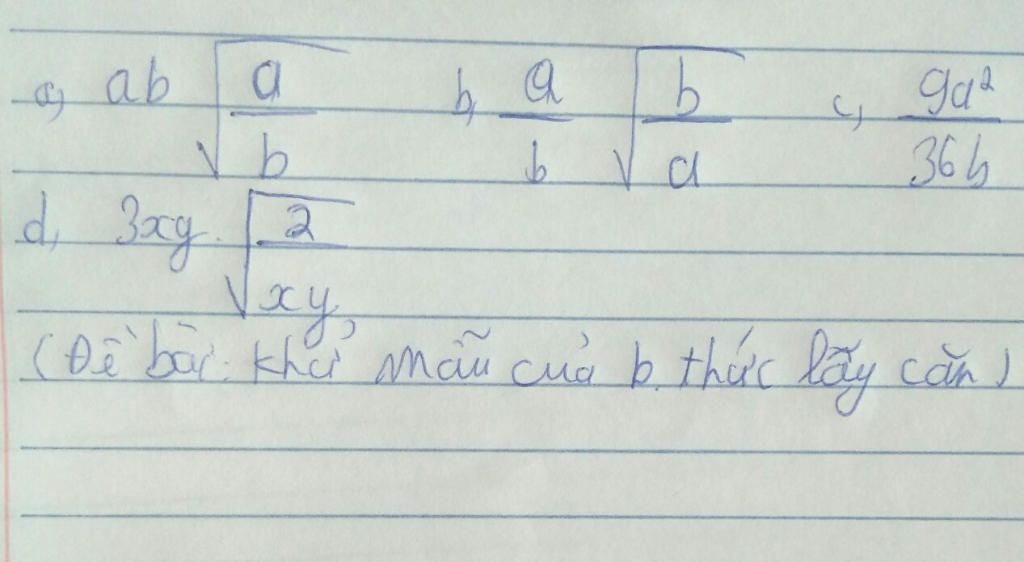 a, ab √(a/b) b, a/b √(b/a) c, 9a²/36b
d, 3xy. √(2/xy)
(Đề bài: Khử mẫu của b. thức lấy căn)